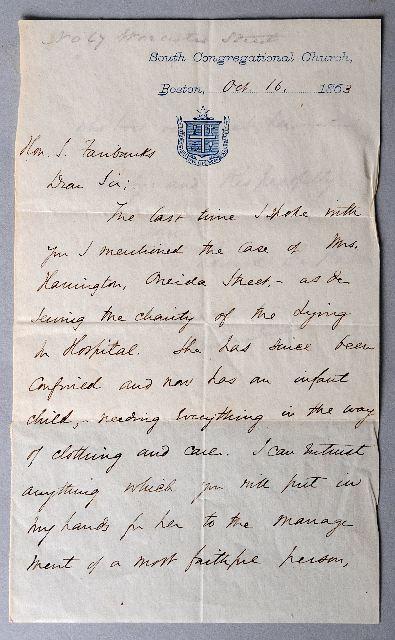 No 67 Worcester Street
South Congregational Church,
Boston, Oct. 16. 1863
Hon. S. Fairbanks
Dear Sir;
The last time I spoke with
you I mentioned the case of Mrs.
Harrington, Oneida Street,- as de-
serving the charity of the Lying
In Hospital. She has since been
confined and now has an infant
child,- needing everything in the way
of clothing and care. I can entrust
anything which you will put in
my hands for her to the manage
ment of a most faithful person,